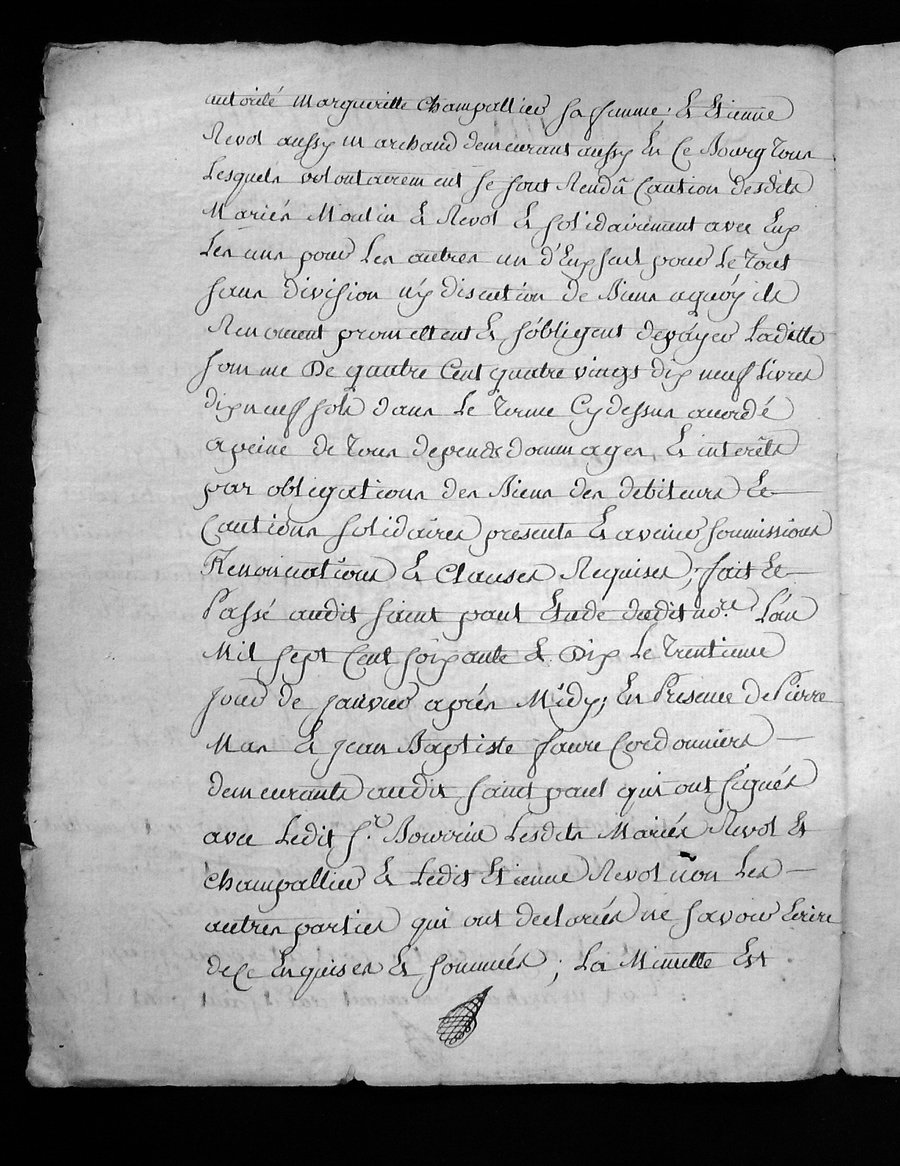 autorité Margueritte champallier sa femme, & Etienne
Revol aussy marchand demeurant aussy En Ce Bourg Tous
Lesquels volontairement se sont Rendû Caution desdits
Mariés Moulin & Revol & solidairement avec Eux
Les uns pour Les autres un d'Eux seul pour Le Tout
sans division n'y discution de Biens aquóy ils
Renoncent promettent & s'obligent depayer Laditte
somme De quatre Cent quatre vingt dix neuf Livres
dix neuf sols dans Le Terme Cydessus accordé
apeine de Tous depends dommages, & interêts
par obligations des Biens des debiteurs Et
Cautions solidaires presents & avenir soumissions
Renonciations & Clauses Requises, fait Et
Passé audit saint paul Etude dudit no.re L'an
Mil sept Cent soixante & Dix Le Trentieme
Jour de Janvier aprés Midy; En Presence de Pierre
Mas & Jean Baptiste faure Cordonniers
demeurants audit saint paul qui ont signés
avec Ledit s.r Lesdits Mariés Revol Et
champallier & Ledit Etienne Revol non Les
autres parties qui ont declarées ne savoir Ecrire
dece Enquises & sommées; La Minutte Est